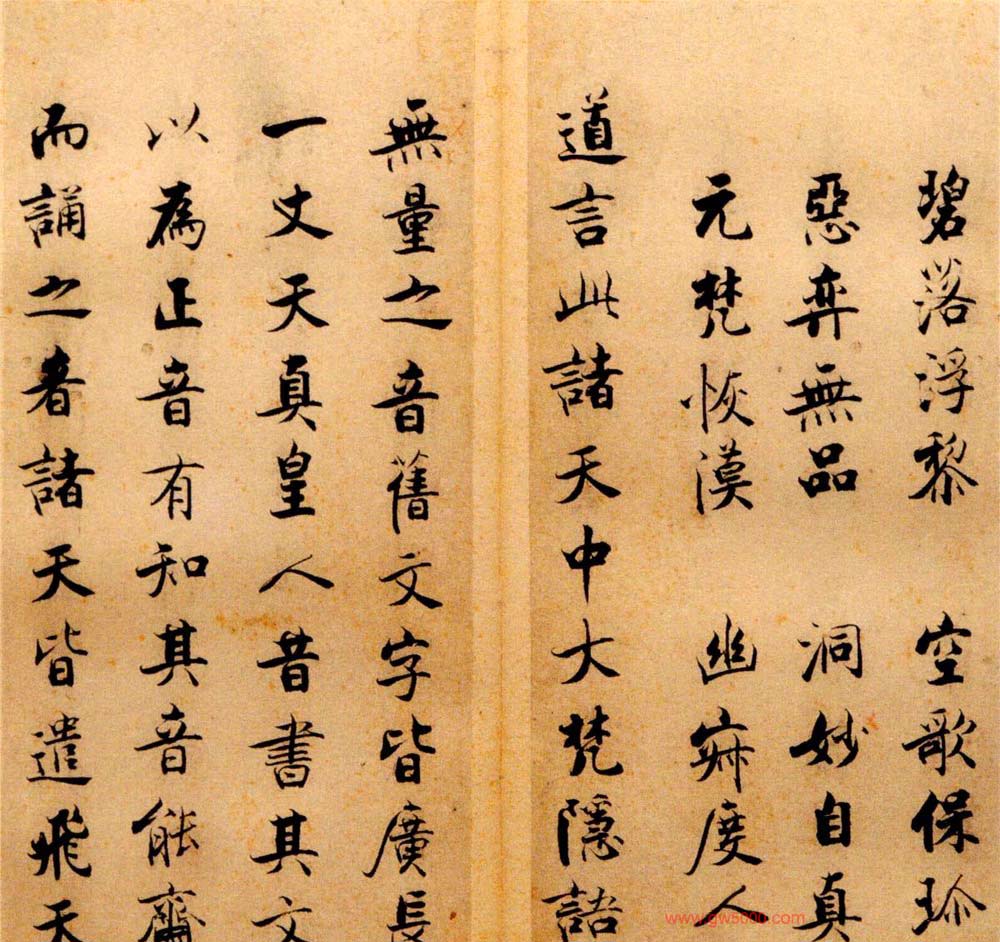 碧落浮黎 空歌保珎
惡弈無品 洞妙自真
元梵恢漠 幽寂度人
道言此諸天中大梵隱語
無量之音舊文字皆廣長
一丈天真皇人昔書其文
以為正音有知其音能齋
而誦之者諸天皆遣飛天
www.gw5000.com